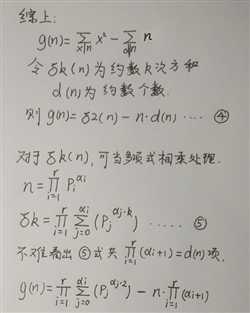 综上:
g(n)=∑_{x|n} x² - ∑_{d|n} n
令 δk(n) 为约数k次方和
d(n) 为约数个数.
则 g(n)=δ2(n)-n·d(n) ···· ④
对于 δk(n), 可当多项式相乘处理.
n=∏_{i=1}^{r} Pi^{αi}
δk=∏_{i=1}^{r} ∑_{j=0}^{αi} (Pj^{αj·k}) ······ ⑤
不难看出⑤式共∏_{i=1}^{r}(αi+1)=d(n)项.
g(n)=∏_{i=1}^{r} ∑_{j=0}^{αi} (Pj^{αj·2}) - n·∏_{i=1}^{r}(αi+1)